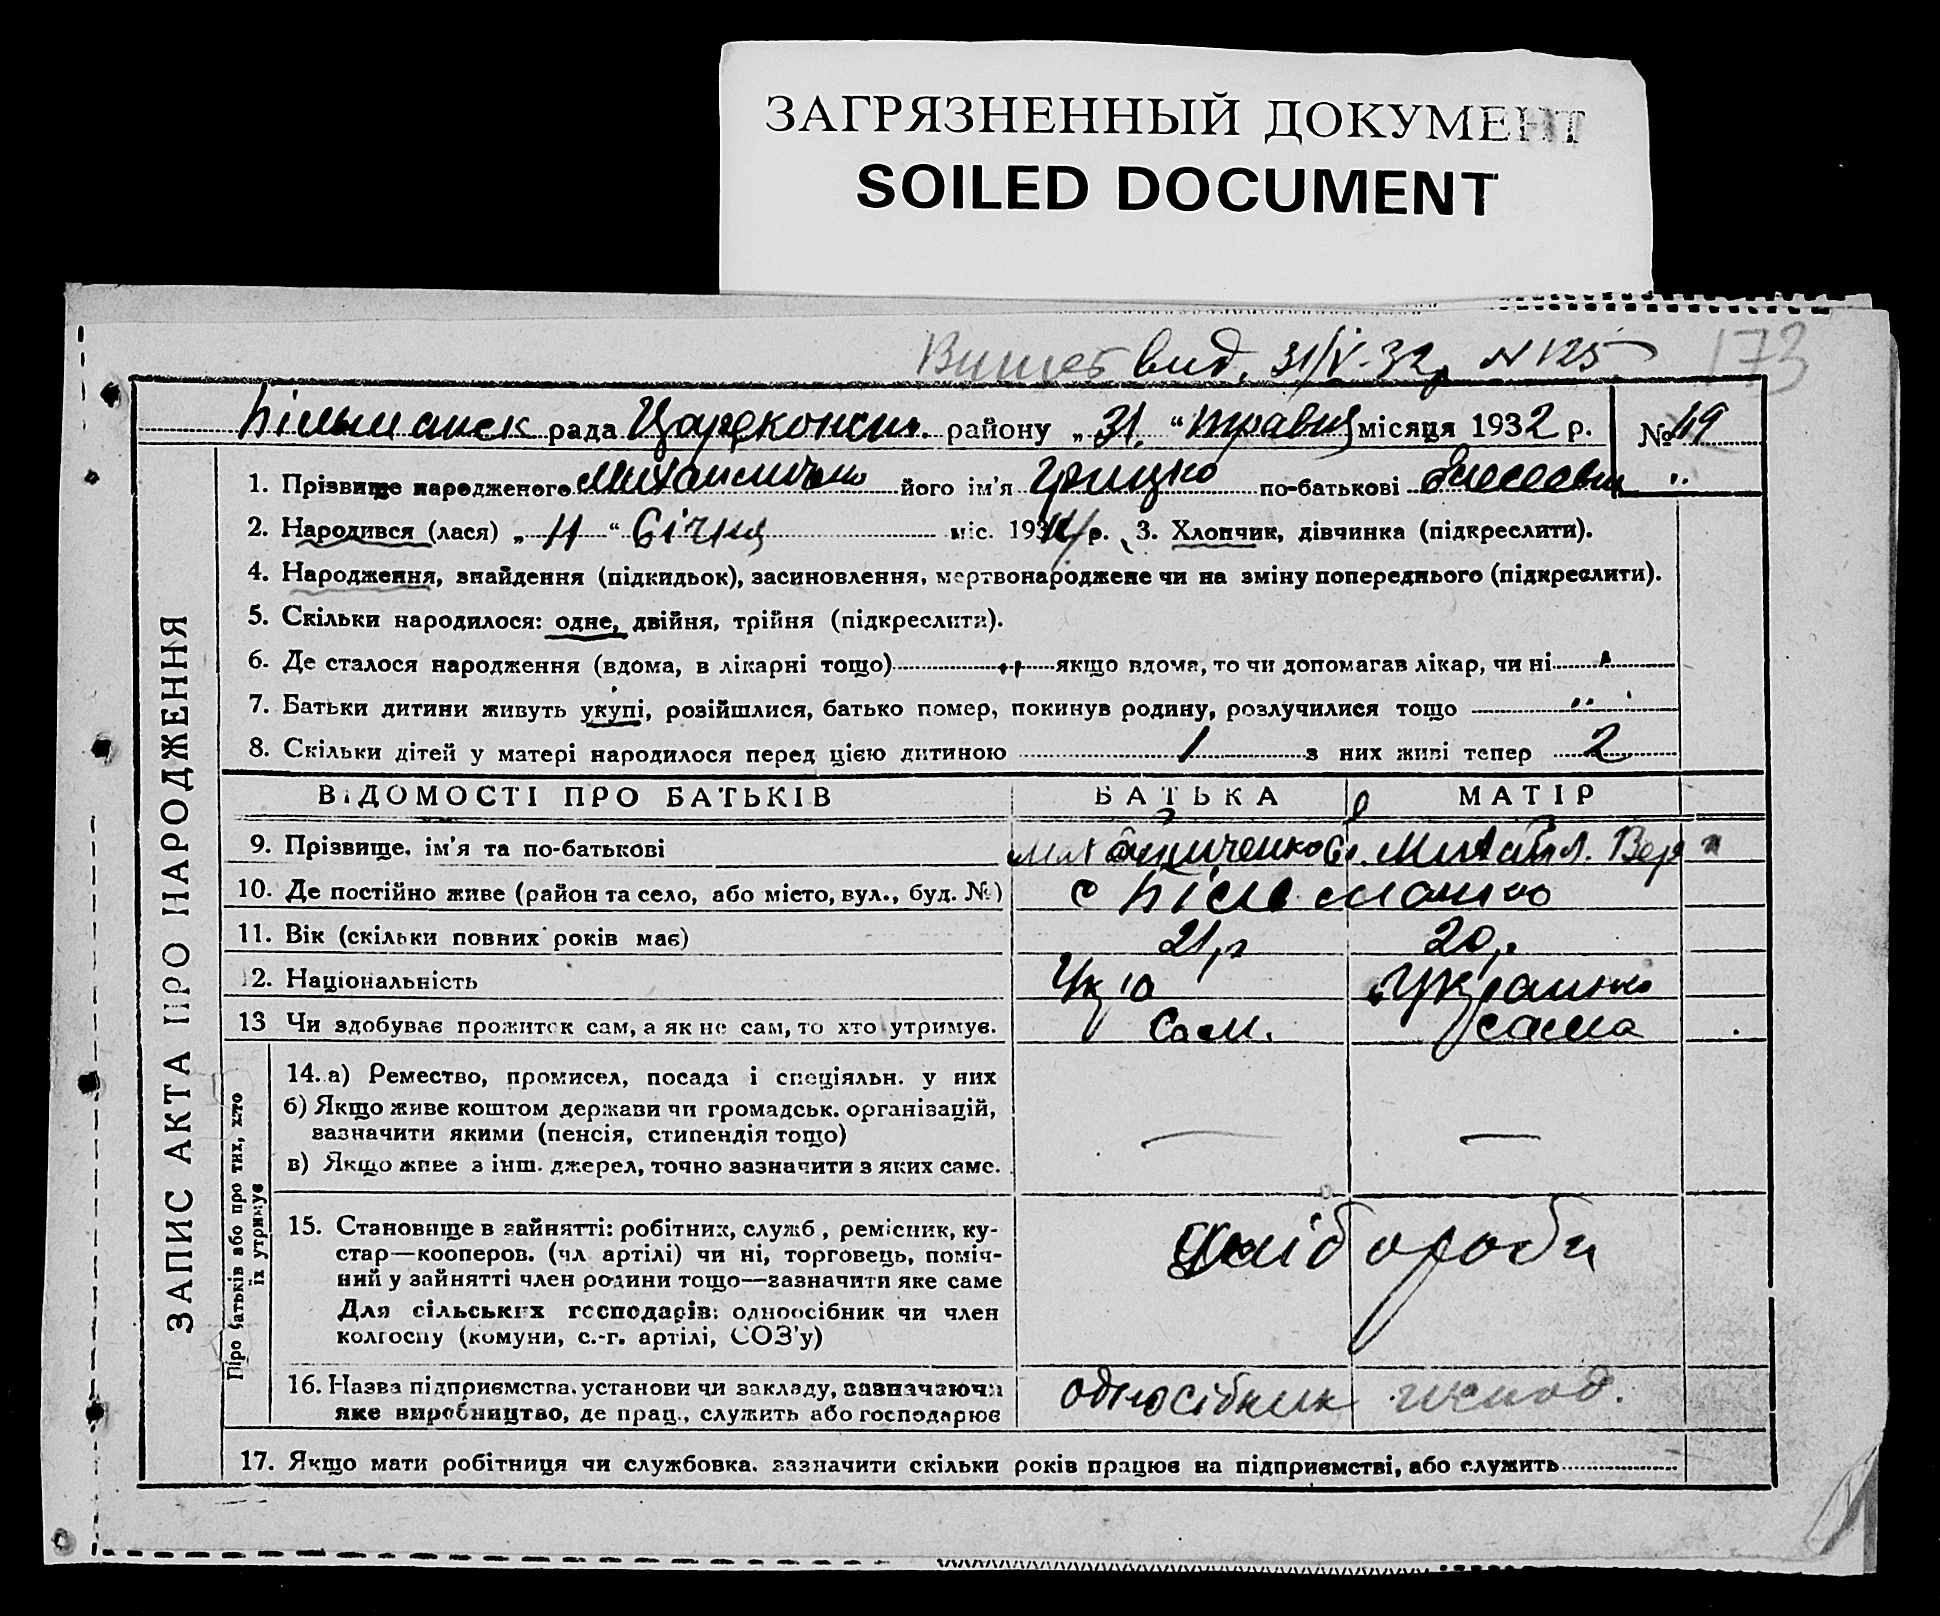 ЗАГРЯЗНЕННЫЙ ДОКУМЕНТ
SOILED DOCUMENT
вид. 31/V-32р N 125 173
рада району „31“ травня місяця 1932 р. № 49
1. Прізвище народженого його ім'я Грицько по-батькові
2. Народився (лася) „11“ Січня міс. 193 р. 3. Хлопчик, дівчинка (підкреслити).
4. Народження, знайдення (підкидьок), засиновлення, мертвонароджене чи на зміну попереднього (підкреслити).
5. Скільки народилося: одне, двійня, трійня (підкреслити).
6. Де сталося народження (вдома, в лікарні тощо) якщо вдома, то чи допомагав лікар, чи ні
7. Батьки дитини живуть укупі, розійшлися, батько помер, покинув родину, розлучилися тощо
8. Скільки дітей у матері народилося перед цією дитиною 1 з них живі тепер 2
ВІДОМОСТІ ПРО БАТЬКІВ БАТЬКА МАТІР
9. Прізвище, ім'я та по-батькові
10. Де постійно живе (район та село, або місто, вул., буд. №) с
11. Вік (скільки повних років має) 21 р 20 р
12. Національність Українка
13 Чи здобуває прожиток сам, а як не сам, то хто утримує. Сам. сама
14. а) Ремество, промисел, посада і спеціяльн. у них
б) Якщо живе коштом держави чи громадськ. організацій,
зазначити якими (пенсія, стипендія тощо) — —
в) Якщо живе з інш. джерел, точно зазначити з яких саме.
15. Становище в зайнятті: робітник, служб., ремісник, ку-
стар—кооперов. (чл. артілі) чи ні, торговець, поміч-
ний у зайнятті член родини тощо—зазначити яке саме хлібороби
Для сільських господарів: одноосібник чи член
колгоспу (комуни, с.-г. артілі, СОЗ'у)
16. Назва підприємства, установи чи закладу, зазначаючи одноосібник господ.
яке виробництво, де прац., служить або господарює
17. Якщо мати робітниця чи службовка, зазначити скільки років працює на підприємстві, або служить
ЗАПИС АКТА ПРО НАРОДЖЕННЯ
Про батьків або про тих, хто
їх утримує